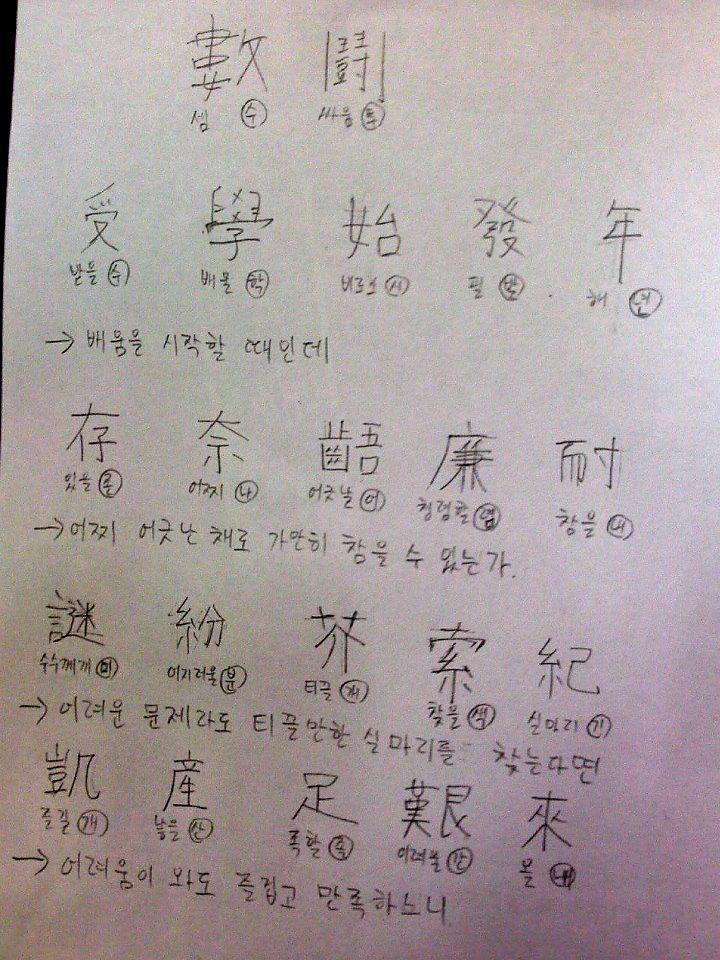 數 鬪
셈 수 싸움 투
受 學 始 發 年
받을 수 배울 학 비로소 시 필 발 해 년
→ 배움을 시작할 때인데
存 奈 齬 廉 耐
있을 존 어찌 나 어긋날 어 청렴할 염 참을 내
→어찌 어긋난 채로 가만히 참을 수 있는가.
謎 紛 芥 索 紀
수수께끼 미 어지러울 분 티끌 개 찾을 색 실마리 기
→ 어려운 문제라도 티끌만한 실마리를 찾는다면
凱 産 足 艱 來
즐길 개 낳을 산 족할 족 어려울 간 올 래
→ 어려움이 와도 즐립고 만족하느니